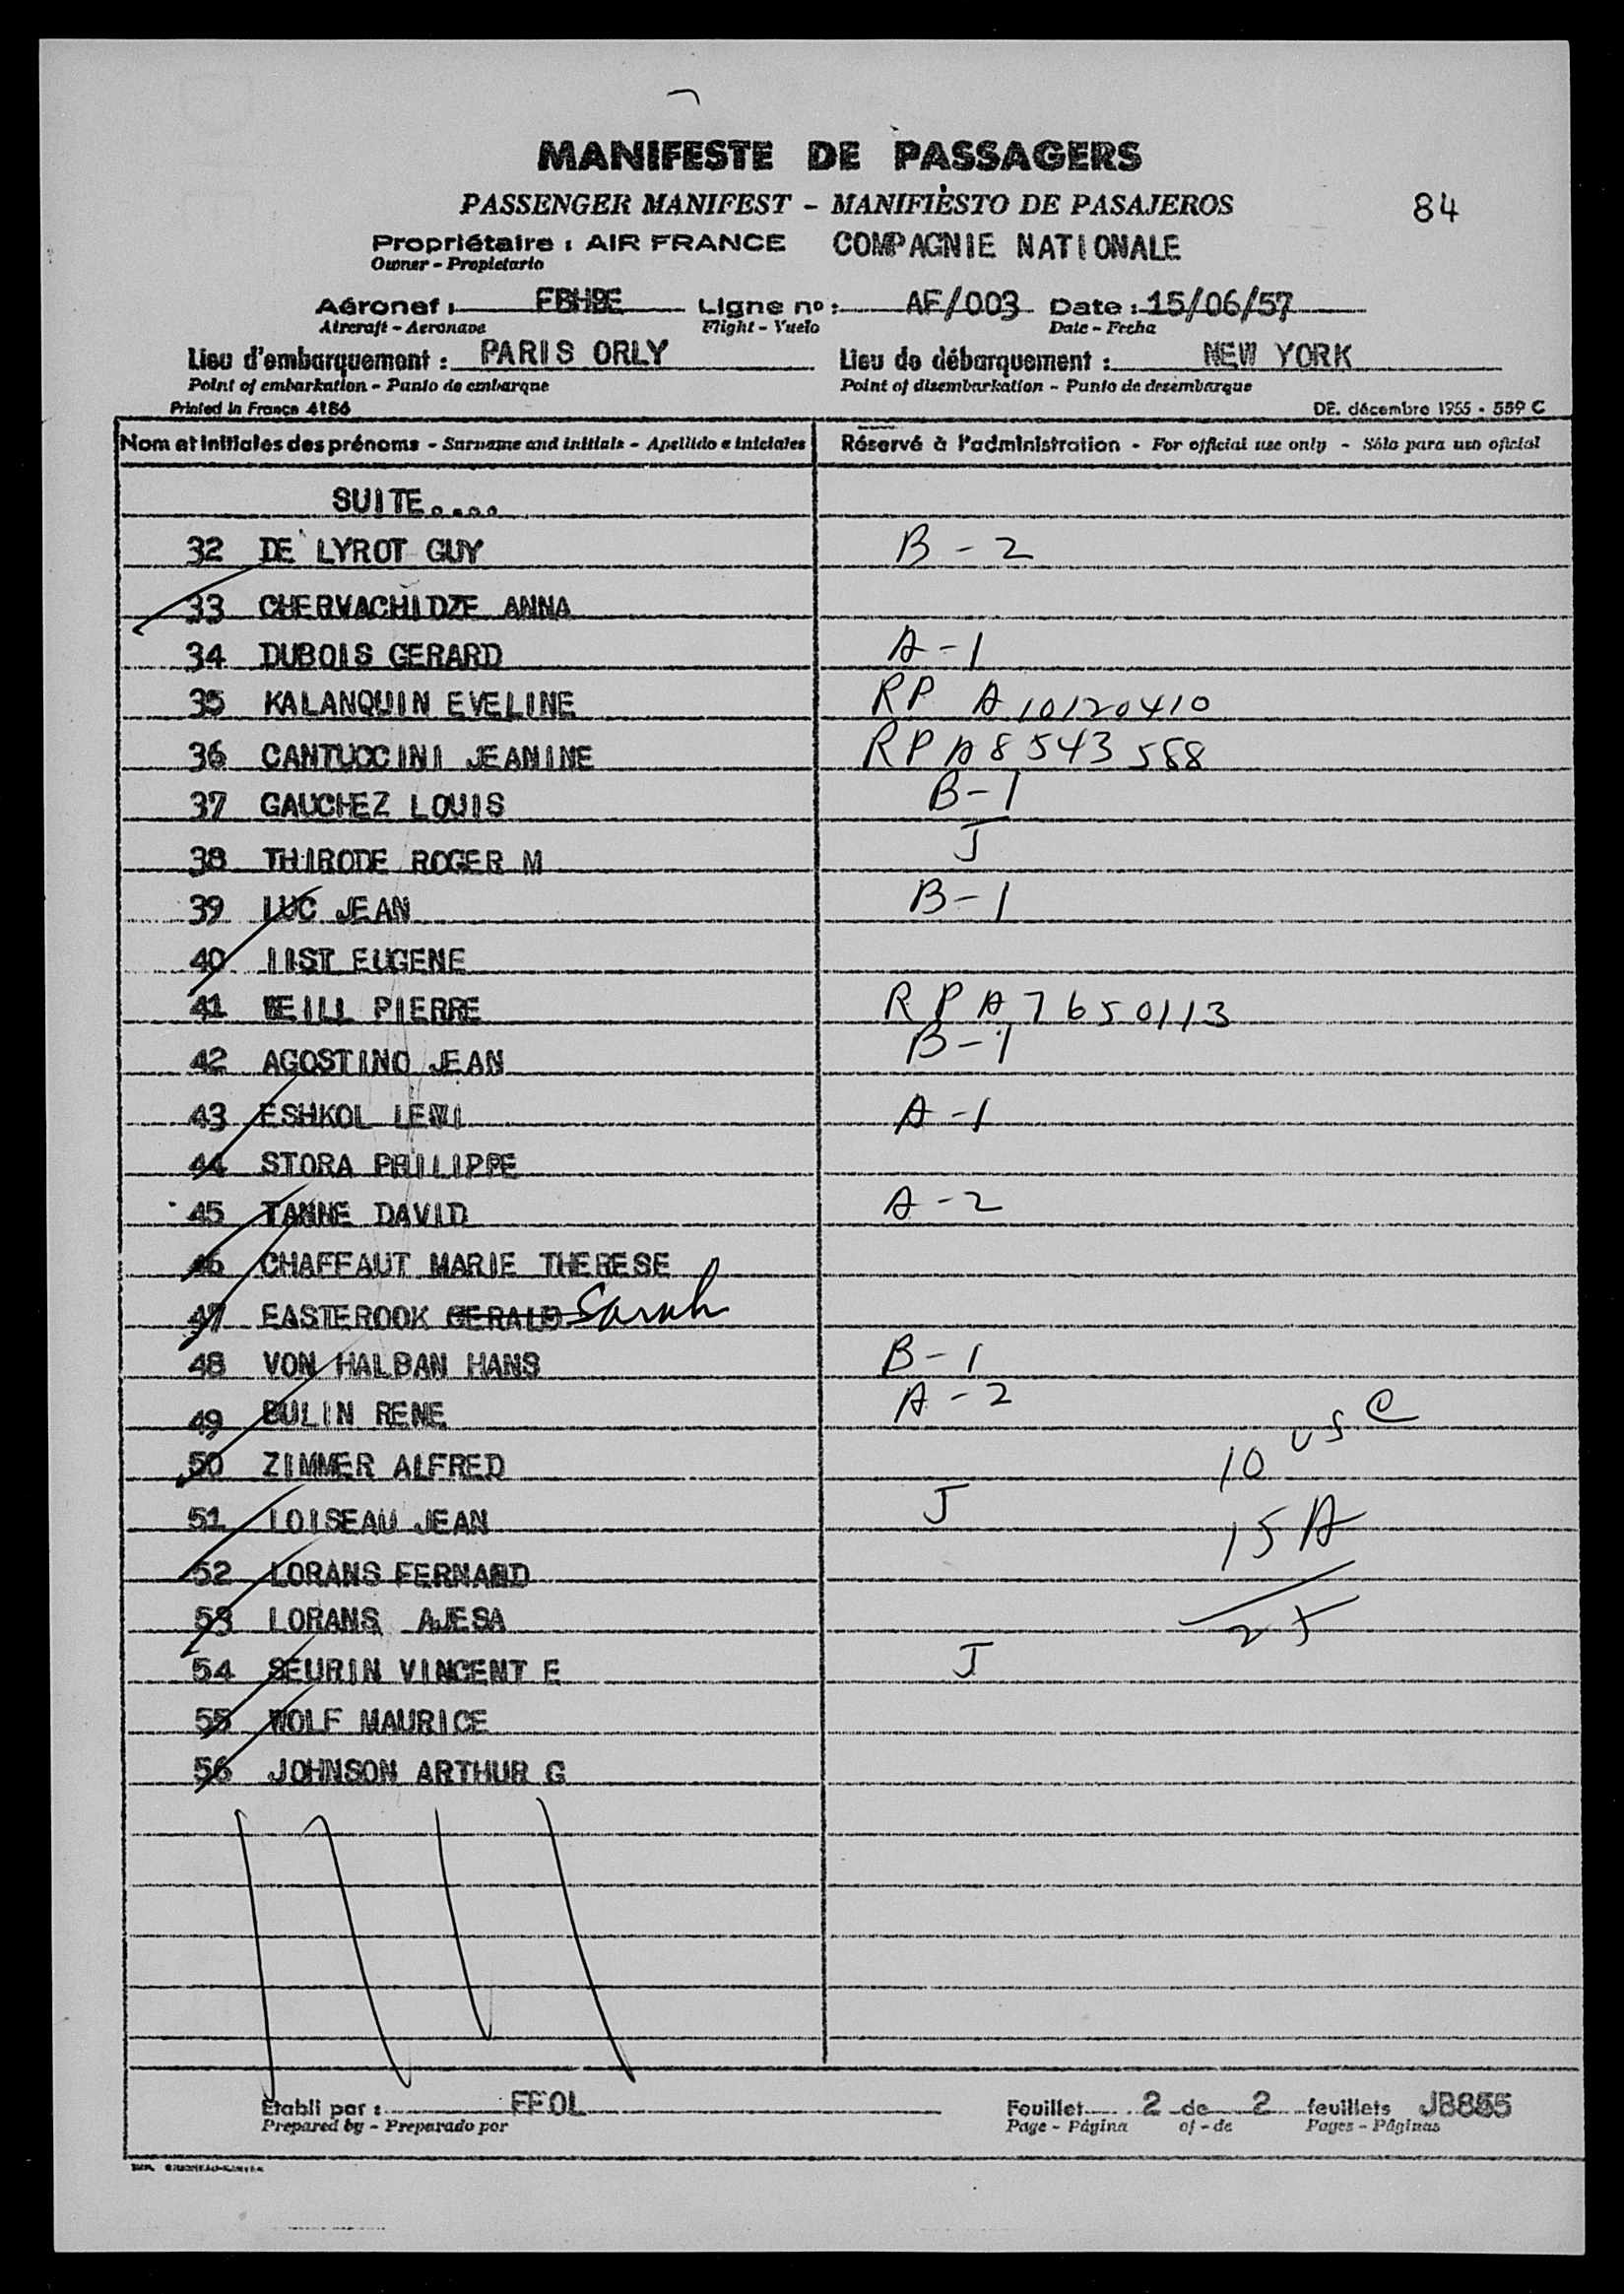 MANIFESTE DE PASSAGERS
PASSENGER MANIFEST - MANIFIESTO DE PASAJEROS
84
Propriétaire : AIR FRANCE COMPAGNIE NATIONALE
Owner - Propietario
Aéronef : FBHBE Ligne nº : AF/003 Date : 15/06/57
Aircraft - Aeronave Flight - Vuelo Date - Fecha
Lieu d'embarquement : PARIS ORLY Lieu de débarquement : NEW YORK
Point of embarkation - Punto de embarque Point of disembarkation - Punto de desembarque
Printed in France 4186 DE. décembre 1955 - 559 C
Nom et initiales des prénoms - Surname and initials - Apellido e iniciales Réservé à l'administration - For official use only - Sólo para uso oficial
SUITE....
32 DE LYROT GUY B-2
33 CHERVACHIDZE ANNA
34 DUBOIS GERARD A-1
35 KALANQUIN EVELINE RP A10120410
36 CANTUCCINI JEANINE RP A8543588
37 GAUCHEZ LOUIS B-1
38 THIRODE ROGER M J
39 LUC JEAN B-1
40 LIST EUGENE
41 WEILL PIERRE RP A7650113
42 AGOSTINO JEAN B-1
43 ESHKOL LEWI A-1
44 STORA PHILIPPE
45 TANNE DAVID A-2
46 CHAFFAUT MARIE THERESE
47 EASTEROOK GERALD Sarah
48 VON HALBAN HANS B-1
49 BULIN RENE A-2
50 ZIMMER ALFRED 10 USC
51 LOISEAU JEAN J 15 A
52 LORANS FERNAND
53 LORANS AJESA 25
54 SEURIN VINCENT E J
55 WOLF MAURICE
56 JOHNSON ARTHUR G
Etabli par : FFOL Feuillet 2 de 2 feuillets JB855
Prepared by - Preparado por Page - Página of - de Pages - Páginas